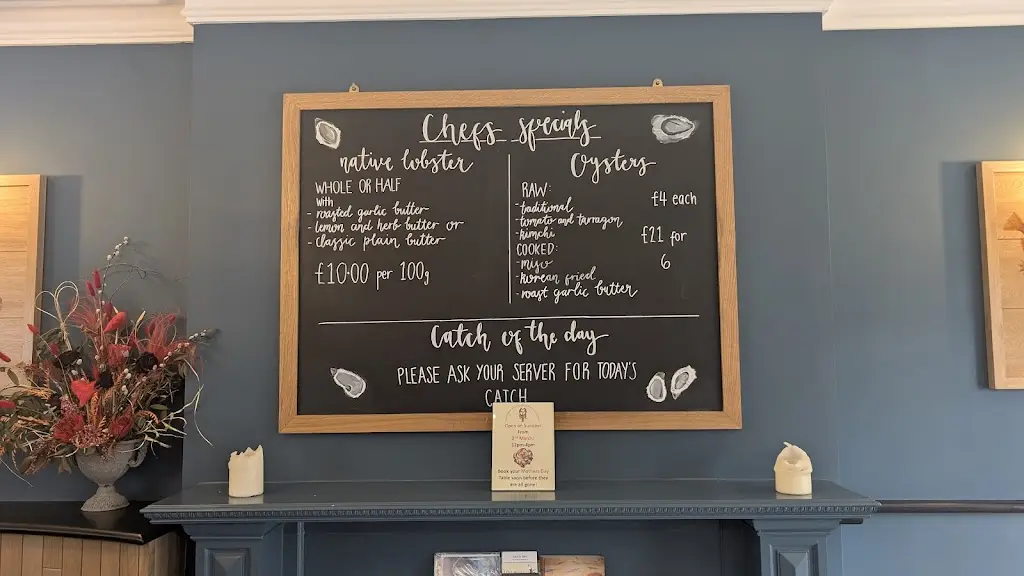 Chefs specials
native lobster
WHOLE OR HALF
with
- roasted garlic butter
- lemon and herb butter or
- classic plain butter
£10.00 per 100g
Oysters
RAW:
- traditional
- tomato and tarragon
- kimchi
COOKED:
- miso
- korean fried
- roast garlic butter
£4 each
£21 for
6
Catch of the day
PLEASE ASK YOUR SERVER FOR TODAY'S
CATCH
Open on Sundays
From
2nd March
12pm-4pm
Book your Mothers Day
Table soon before they
are all gone!